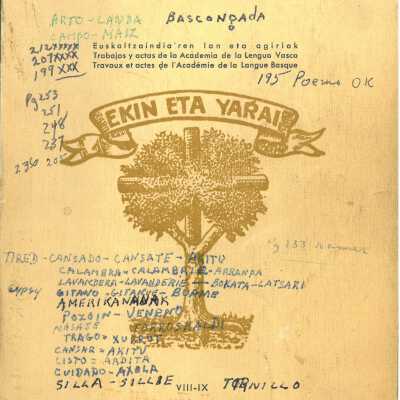 ARTO-LANDA BASCONGADA
CAMPO-MAIZ
212XXXXX
207XXXX
199XXX
Euskaltzaindia'ren lan eta agiriak
Trabajos y actas de la Academia de la Lengua Vasca
Travaux et actes de l'Académie de la Langue Basque
195 Poema OK
Pg 253
251
248
237
236
EKIN ETA YARAI
TIRED-CANSADO-CANSATE-AKITU
CALAMBRA-CALAMBRIE-ARRANPA
LAVANDERA-LAVANDERIE-BOKATA-LATSARI
GYPSY GITANO-GITANUE-BOAME
AMERIKANAUAK
POZOIN-VENENO
MASATE
TRAGO=XURRUT
CANSAR=AKITU
LISTO=ARDITA
CUIDADO=AXOLA
SILLA-SILLIE TORNILLO
VIII-IX